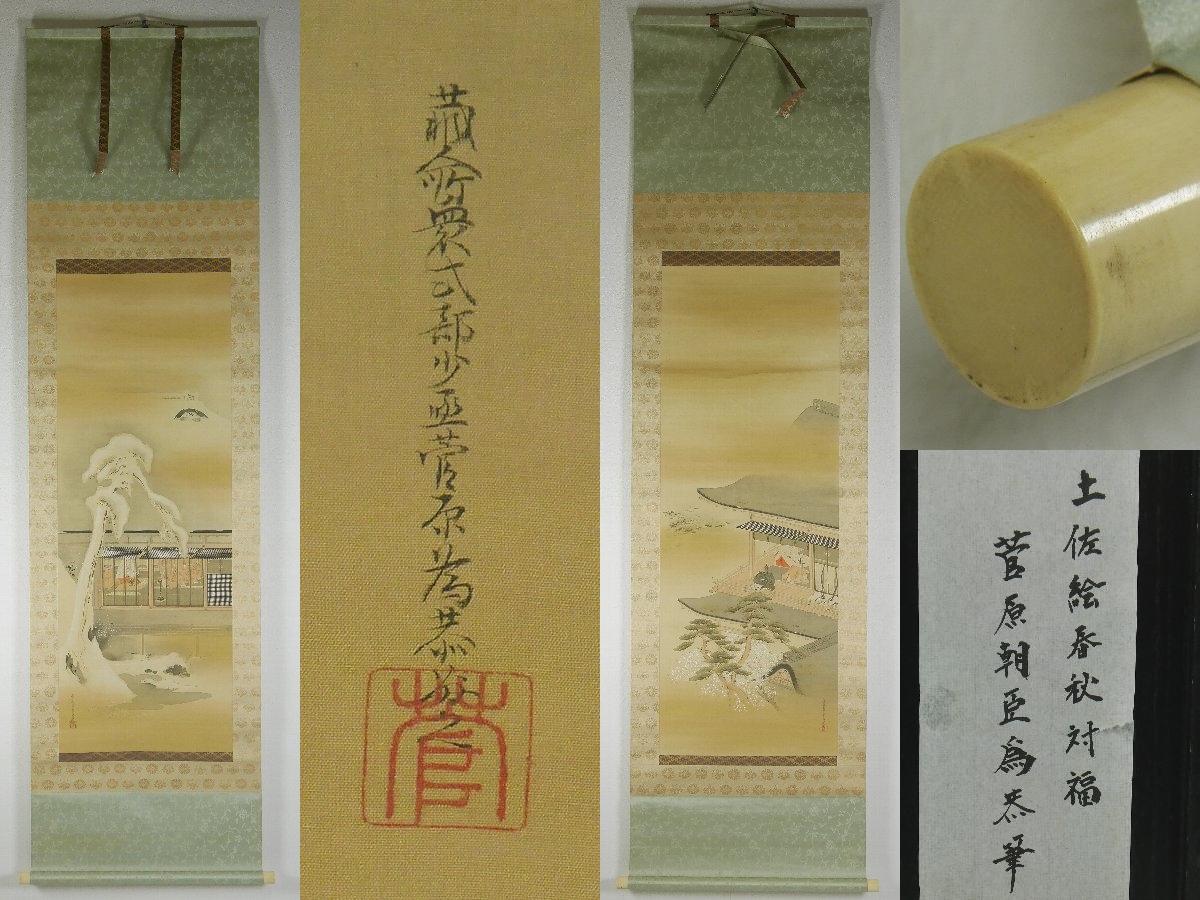 蔵人所衆式部少丞菅原為恭敬之
菅
土佐絵春秋対福
菅原朝臣為恭筆